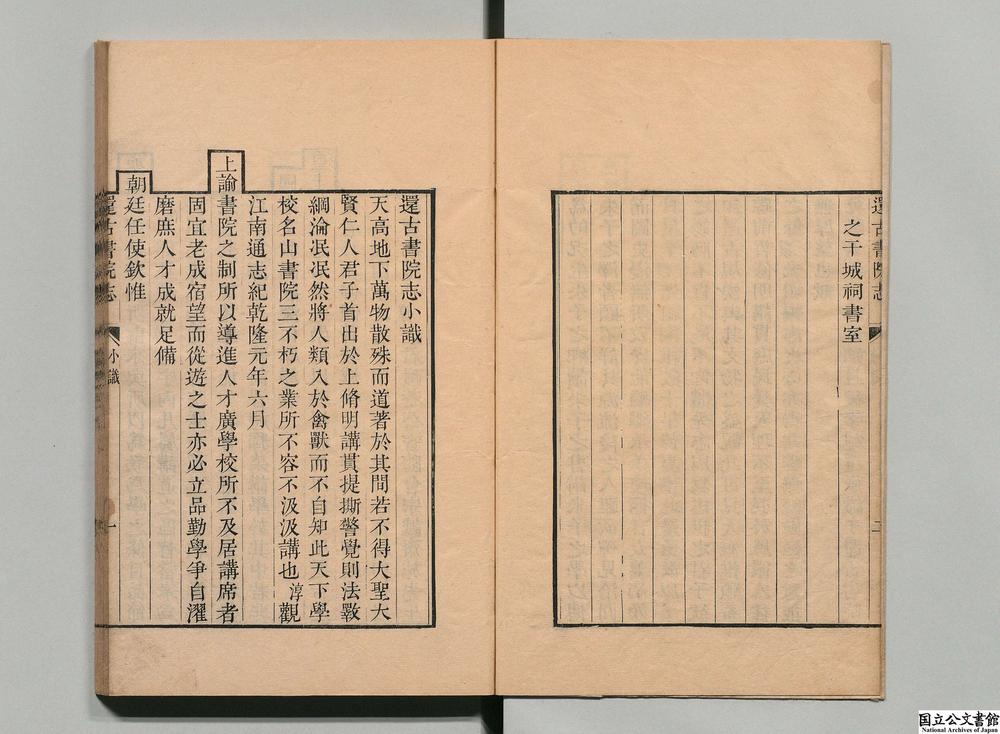 還古書院志
二
之干城祠書室
還古書院志小識
天高地下萬物散殊而道著於其間若不得大聖大
賢仁人君子首出於上脩明講貫提撕警覺則法斁
綱淪泯泯然將人類入於禽獸而不自知此天下學
校名山書院三不朽之業所不容不汲汲講也淳觀
江南通志紀乾隆元年六月
上諭書院之制所以導進人才廣學校所不及居講席者
固宜老成宿望而從遊之士亦必立品勤學爭自濯
磨庶人才成就足備
朝廷任使欽惟
還古書院志
小識
一
国立公文書館
National Archives of Japan